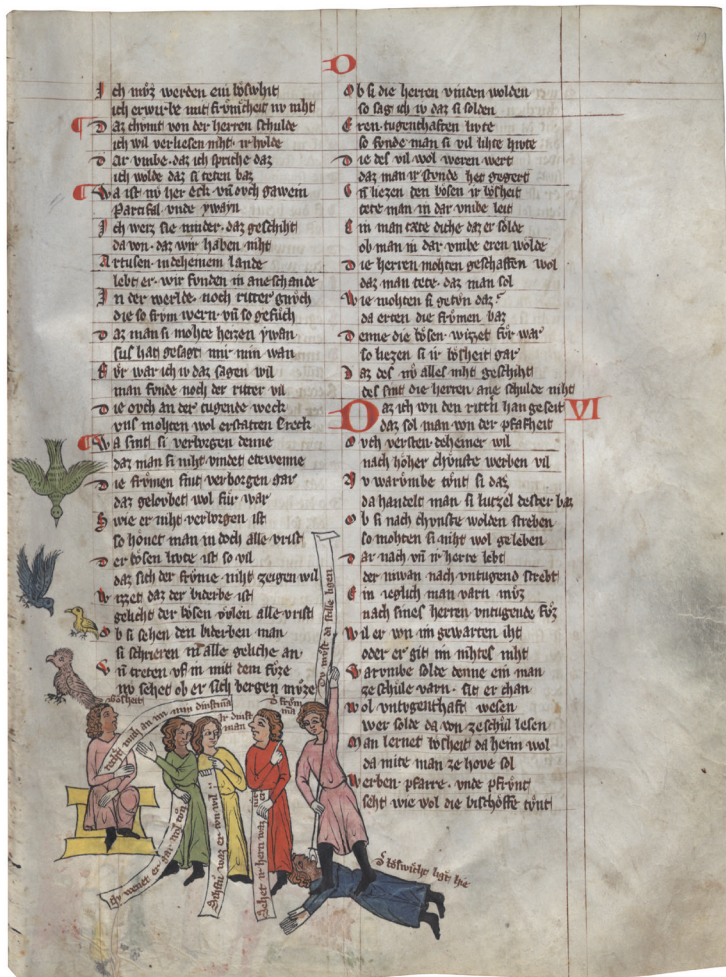 O
Ich mvͦz werden ein boͤswiht
ich erwirbe mit frvͦmcheit nv niht
Daz chvmt von der herren schulde
ich wil verliesen niht ir hvlde
Dar vmbe daz ich spriche daz
ich wolde daz si teten baz
Wa ist nv her Eck vn̄ ovch gawein
Partifal vnde ywayn
Ich weiz sie ninder daz geschiht
da von daz wir haben niht
Artusen in deheinem lande
lebt er wir fvnden in ane schande
In der werlde noch ritter gnvͦch
die so frvm wern vn̄ so gefvͤch
Daz man si mohte heizen ywan
sus hat gesagt mir min wan
Fvͤr war ich iv daz sagen wil
man fvnde noch der ritter vil
Die ovch an der tugende weck
vns mohten wol erstaten Ereck
Wa sint si verborgen denne
daz man si niht vindet etewenne
Die frvͤmen sint verborgen gar
daz gelovbet wol fuͤr war
Swie er niht verborgen ist
so hovet man in doch alle vrist
Der bosen livte ist so vil
daz sich der frvme niht zeigen wil
Wizzet daz der biderbe ist
gelicht der bosen vvlen alle vrist
Ob si sehen den biderben man
si schrieren in alle geliche an
Vn̄ treten vf in mit dem fvͦze
nv sehet ob er sich bergen mvͤze
Ob si die herren vinden wolden
so sag ich iv daz si solden
Eren tugenthaften livte
so fvnde man si vil lihte hivte
Die des vil wol weren wert
daz man ir stvnde het gegert
Vn̄ liezen den bosen ir bosheit
tete man in dar vmbe leit
Ein man tete diche daz er solde
ob man in dar vmbe eren wolde
Die herren mohten geschaffen wol
daz man tete daz man sol
Wie mohten si getvn daz
da erten die frvͤmen baz
Denne die bosen wizzet fvͤr war
so liezen si ir bosheit gar
Daz des nv alles niht geschiht
des sint die herren ane schulde niht
Daz ich von den rittern han geseit VI
daz sol man von der pfafheit
Ovch versten deheiner wil
nach hoher chvnste werben vil
Nv warvmbe tvnt si daz
da handelt man si lutzel dester baz
Ob si nach chvnste wolden streben
so mohten si niht wol geleben
Dar nach vn̄ ir herre lebt
der niwan nach vntugend strebt
Ein ieglich man varn mvͦz
nach sines herren vntugende fvͦz
Wil er von im gewarten iht
oder er git im nihtes niht
Warvmbe solde denne ein man
ze schvle varn sit er chan
Wol vntvgenthaft wesen
wer solde da von ze schvl lesen
Man lernet bosheit da heim wol
da mite man ze hove sol
Werben pfarre vnde pfrvnt
seht wie wol die bischoffe tvͦnt
bosheit
ir dinst man
d᷒ frvm man
dv mvͦst da stille ligen
ich wenet er gar wol tvn
Sehet ir hern waz
d᷒ boswicht ligt hie